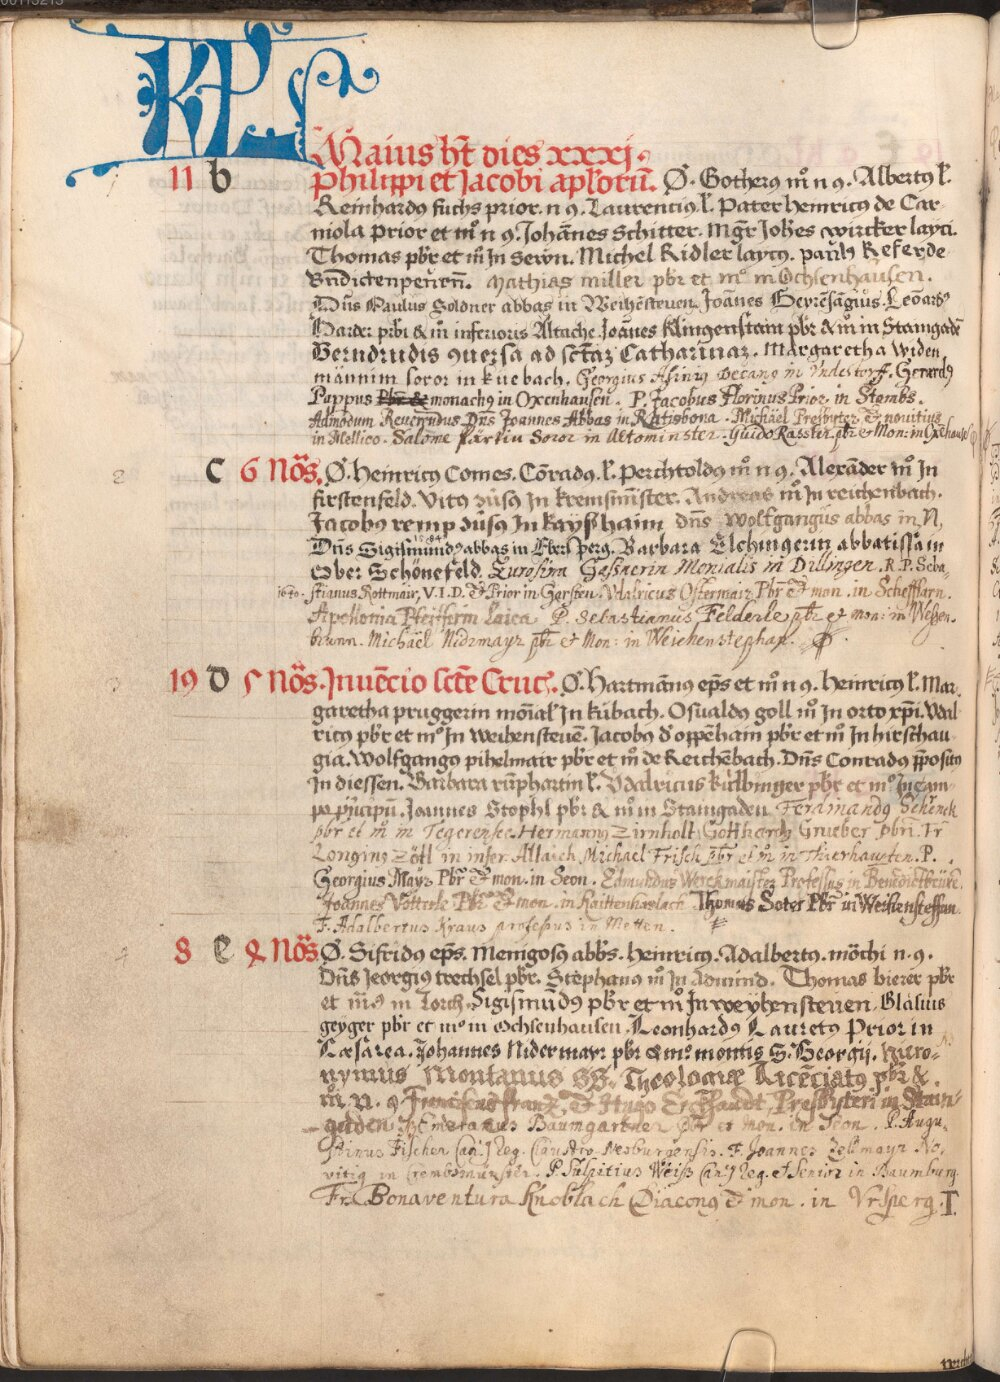 KL
Maius ht dies xxxj.
11 b Philippi et Jacobi aplorū. O. Gotherg m̊ n 9. Albertg l.
Reinhardg fuchs prior. n 9. Laurencig l. Pater heinricg de Car
niola prior et m̊ n 9. Johānes Schitter. Mgr Joh̄es wircker layci.
Thomas pb̄r et m̊ in Sewn. Michel Ridler laycg. paulg Referde
Bn̄dictenpeuren̄. Mathias miller pbr et mº in Ochsenhausen.
Dn̄s Paulus Soldner abbas in Weihēsteuen. Joānes
Harder prb̄i & m̊ inferioris Altache. Joānes Klingenstain pbr & m̊ in Stamgadē
Berndrudis 9uersa ad sctaz Catharinaz. Margaretha widen
männin soror in küebach. Georgius Asinig Decang in Vndestorf. Gerardg
Pappus monachg in Oxenhausen. P. Jacobus Florinus Prior in Stambs.
Admodum Reuerendus Dn̄s Joannes Abbas in Ratisbona. Michäel Presbyter & nouitius
in Mellico. Salome Soror in Altominster. Guido Rassler pbr et Mon: in Oxehausē
2 C 6 Nos. O. Heinricg Comes. Cōradg. l. Perchtoldg m̊ n 9. Alexāder m̊ In
firstenfeld. Vitg In kremsmīster. Andreas m̊ In reichenbach.
Jacobg remp In kayshaim dn̄s Wolfgangus abbas in N,
Dn̄s Sigismundg abbas in Ebersperg. Barbara Elchingerin abbatissa in
Ober Schönefeld. Eurosina Gassnerin Monialis in Dillingen. R. P. Seba-
1620. stianus Rottmair, V.I.D. & Prior in Garsten. Vdalricus Ostermair Pbr & mon. in Schefftlarn.
Apollonia Pfeifferin Laica P. Sebastianus Felderle pbr et mon: in Wessen.
brunn. Michäel Nidrmayr pbr et Mon: in Weichenstephan.
3 19 D 5 Nos. Inuēcio sctē Crucg. O. Hartmāng ep̄s et m̊ n 9. heinricg l. Mar-
garetha pruggerin mōial In kübach. Osualdg goll m̊ In orto xp̄i. Vdal
ricg pbr et mº In weihensteuē. Jacobg d'oppēhain pbr et m̊ In hirschau
gia. Wolfgangg pihelmair pbr et m̊ de Reichēbach. Dn̄s Conradg p̄positg
In diessen. Barbara l. Vdalricus külbinger pbr et mº In cam
po Joannes Stophl pbr & m̊ in Stamgaden. Ferdinandg Schenck
pbr et m̊ in Tegerensee. Hermanng Zirnholt, Gotthardg Grueber pbri. Fr
Longing Zötl in infer. Altaich. Michael Frisch pbr et m̊ in Thierhaupten. P.
Georgius Mayr Pbr & mon. in Seon. Edmundus Werckmaister Professus in Benedictbeüre.
Joannes Votterle Pbr & mon. in Raittenhaslach Thomas Soter Pbr in Weihensteffan
F. Adalbertus Kraus professus in Metten.
4 8 E 4 Nos O. Sifridg ep̄s. Menigosg abb̄s. heinricg. Adalbertg. mōchi n. 9.
Dn̄s Jeorgig trechsel pbr. Stephang m̊ In Admūnd. Thomas bierer pbr
et m̄s in Lorch. Sigismūdg pbr et m̊ In weyhensteuen. Blasius
geyger pbr et mº in Ochsenhausen. Leonhardg Lauretg Prior in
Cæsarea. Johannes Nidermayr pbr & mº montis S. Georgij. Hiero-
nymus Montanus SS. Theologiæ Licēciatg pbr &
m̊. n. 9 Franciscus Franz, & Hugo Eckhardt, Presbyteri in Stam-
gaden. Emeranus Baumgartner pbr et mon. in Seon. P. Augu-
stinus Fischer Can: Reg. Claustro-Neoburgensis. F. Joannes Zellmayr No-
vitig in Cremsmünster. P. Sulpitius Weiss Can: Reg. & Senior in Baumburg.
Fr. Bonaventura Knoblach Diacong & mon. in Vrsperg.